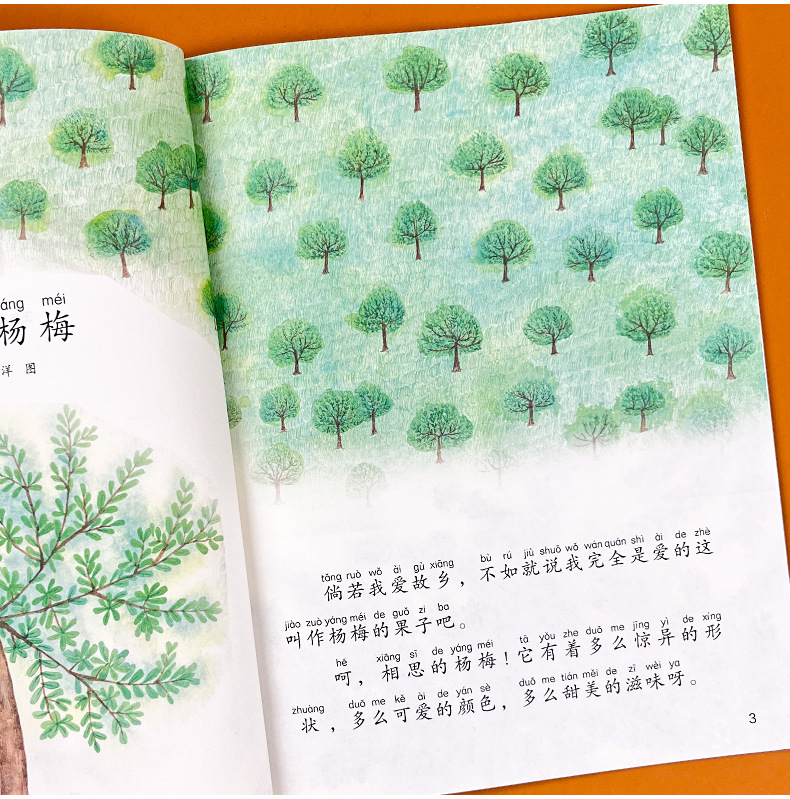 áng méi
杨梅
洋 图
tǎng ruò wǒ ài gù xiāng bù rú jiù shuō wǒ wán quán shì ài de zhè
倘若我爱故乡，不如就说我完全是爱的这
jiào zuò yáng méi de guǒ zi ba
叫作杨梅的果子吧。
hē xiāng sī de yáng méi tā yǒu zhe duō me jīng yì de xíng
呵，相思的杨梅！它有着多么惊异的形
zhuàng duō me kě ài de yán sè duō me tián měi de zī wèi ya
状，多么可爱的颜色，多么甜美的滋味呀。
3